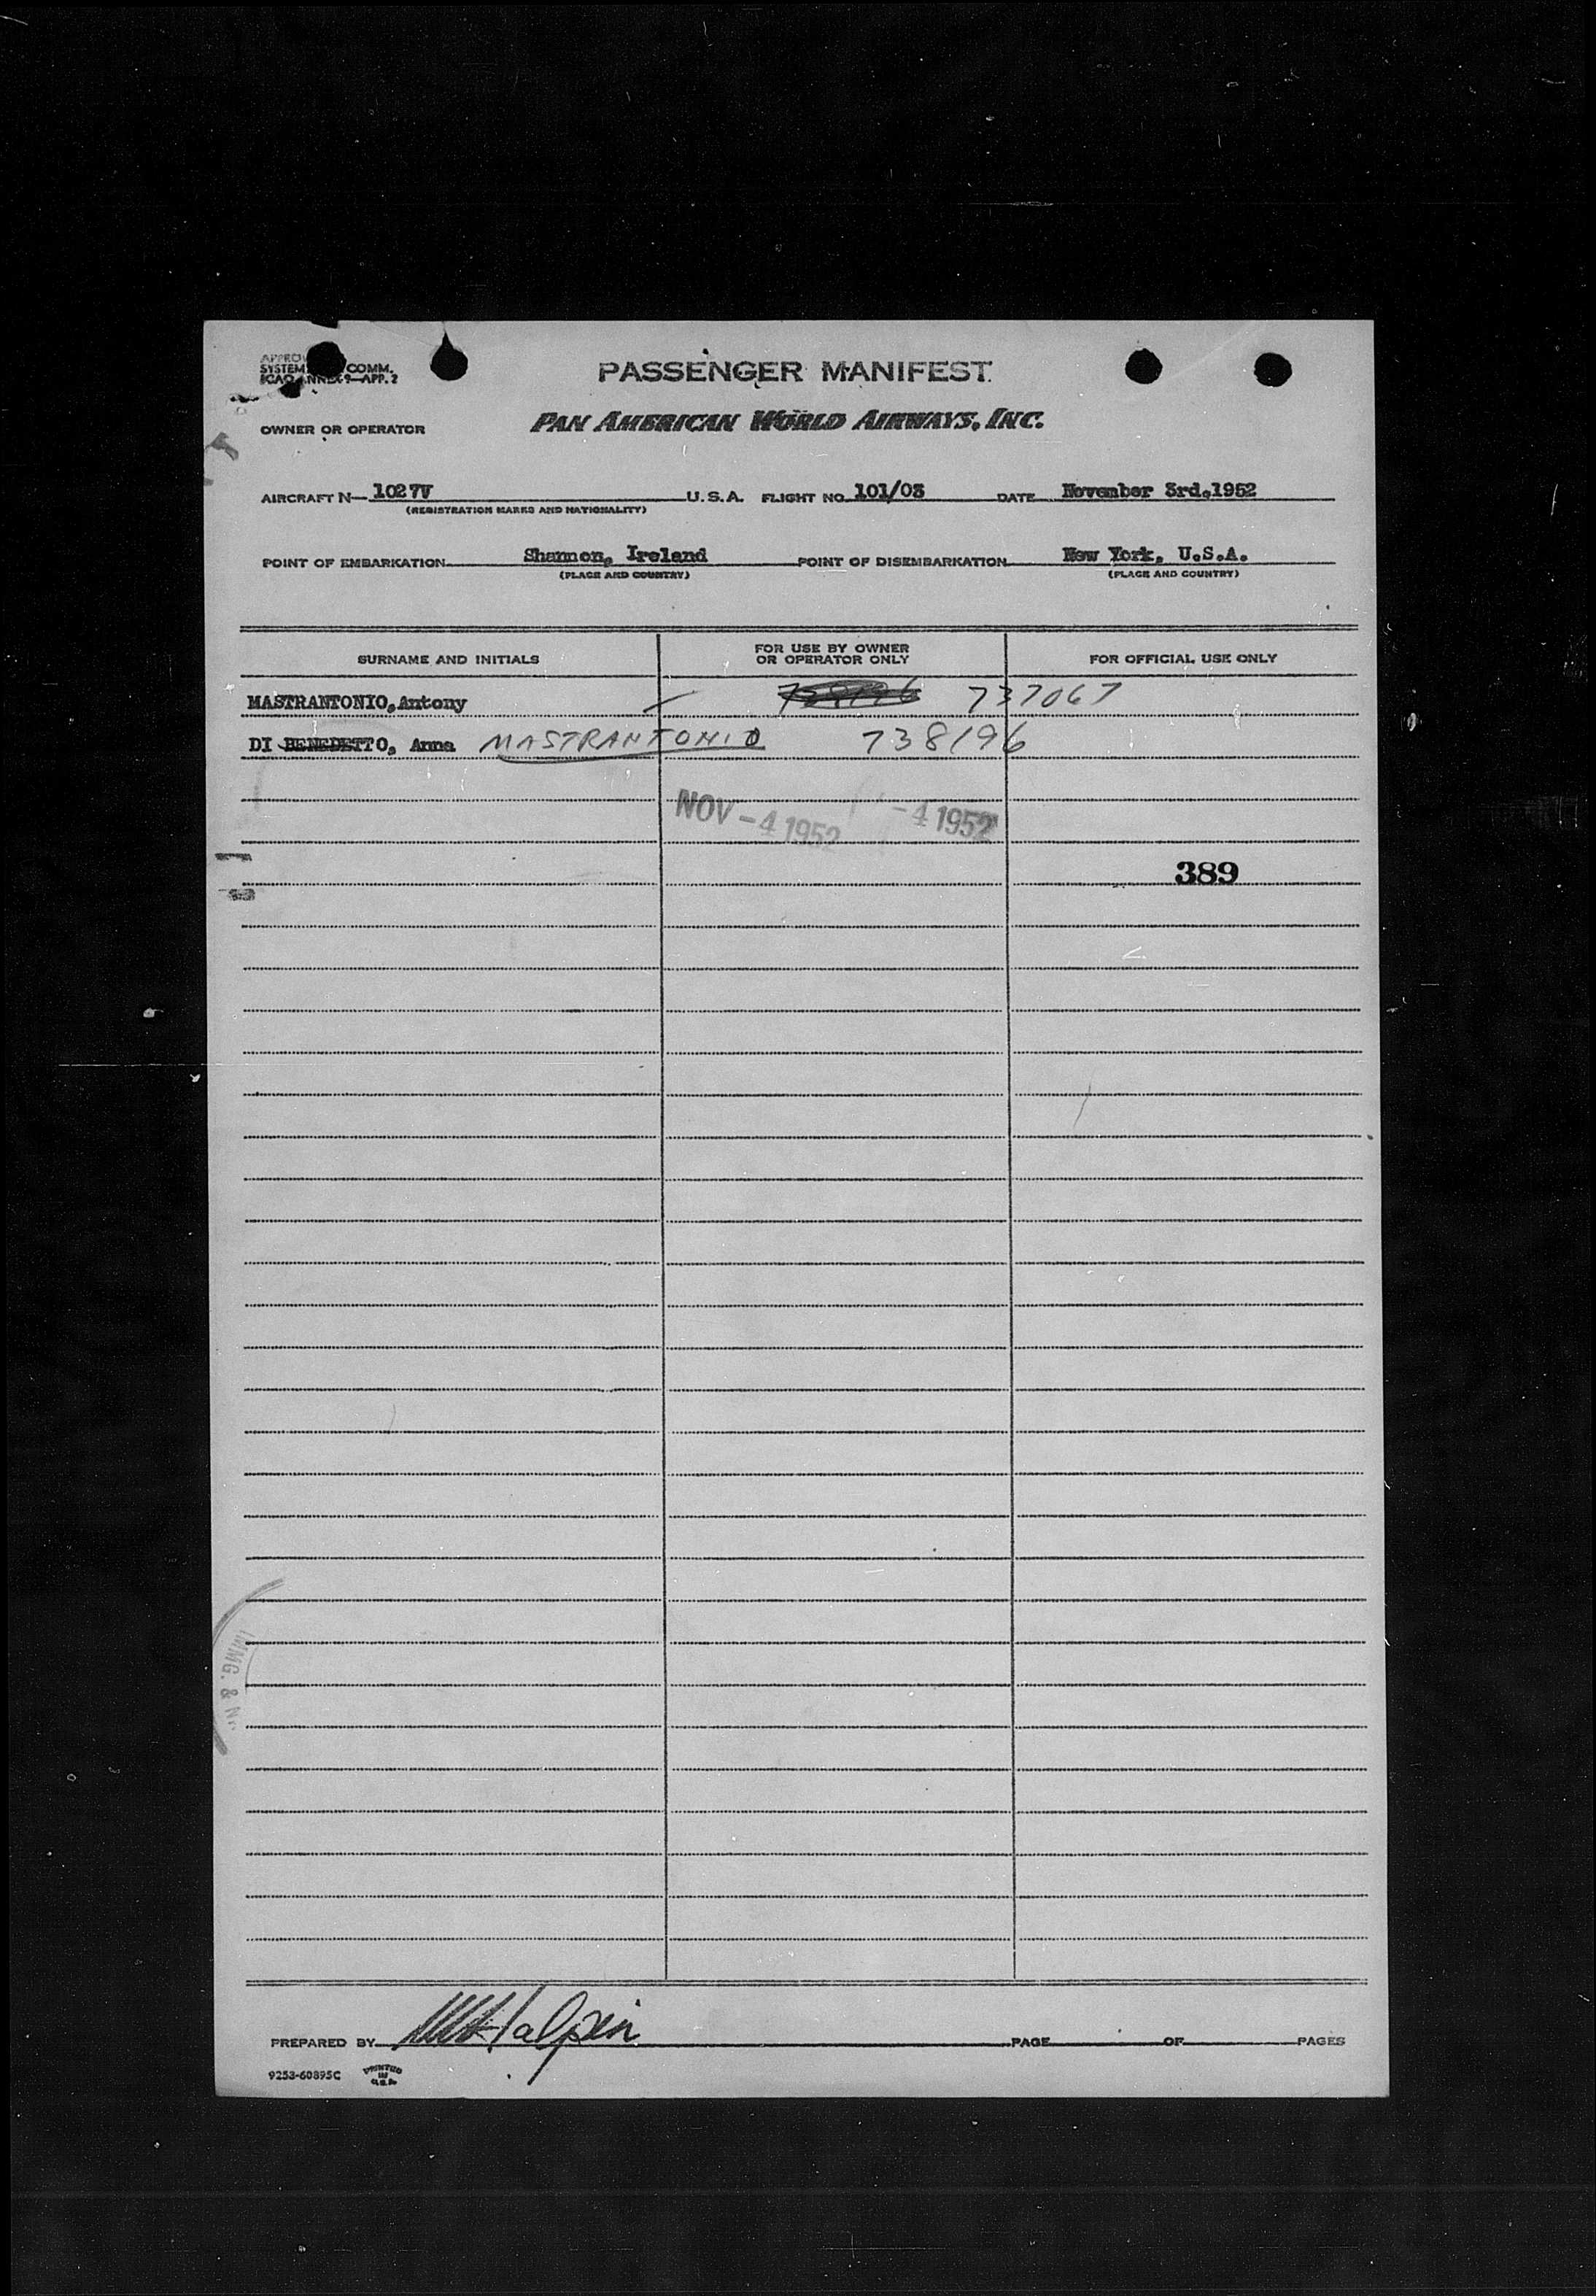 PASSENGER MANIFEST
SYSTEM COMM.
ICAO ANNEX 9—APP. 2
OWNER OR OPERATOR PAN AMERICAN WORLD AIRWAYS, INC.
AIRCRAFT N— 1027V U.S.A. FLIGHT NO. 101/03 DATE November 3rd.1952
(REGISTRATION MARKS AND NATIONALITY)
POINT OF EMBARKATION Shannon, Ireland POINT OF DISEMBARKATION New York, U.S.A.
(PLACE AND COUNTRY) (PLACE AND COUNTRY)
SURNAME AND INITIALS FOR USE BY OWNER OR OPERATOR ONLY FOR OFFICIAL USE ONLY
MASTRANTONIO,Antony 738196 737067
DI BENEDETTO, Anna MASTRANTONIO 738196
NOV -4 1952 -4 1952
389
IMMG. & N
PREPARED BY Halpin PAGE OF PAGES
9253-60895C PRINTED IN U.S.A.